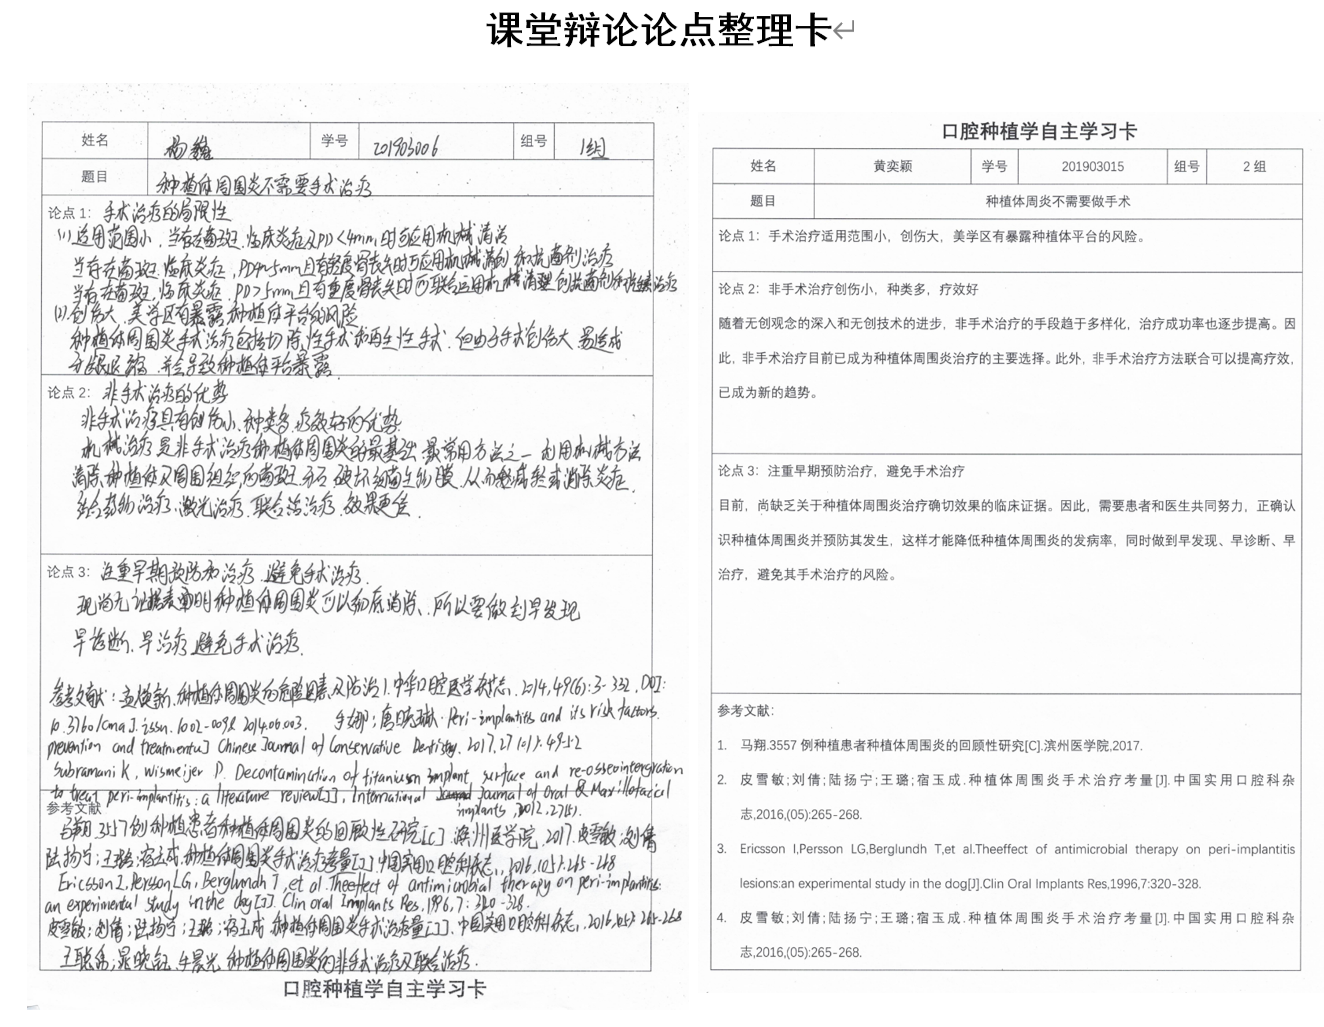 课堂辩论论点整理卡
姓名 杨 学号 201903006 组号 1组
题目 种植体周围炎不需要手术治疗
论点 1: 手术治疗的局限性
(1) 适用范围小. 当存在菌斑. 临床炎症及PD<4mm, 时可应用机械清洁
当存在菌斑. 临床炎症, PD4~5mm且有轻度骨丧失时可应用机械清创和抗菌剂治疗
当存在菌斑. 临床炎症. PD>5mm且有重度骨丧失时可联合运用机械清理创抗菌剂和抗生素治疗
(2) 创伤大, 美学区有暴露种植体平台的风险
种植体周围炎手术治疗包括切除性手术和再生性手术. 但由于手术创伤大 易造成
牙龈退缩. 并会导致种植体平台暴露.
论点 2: 非手术治疗的优势
非手术治疗具有创伤小、种类多、疗效好的优势
机械治疗是非手术治疗种植体周围炎的最基础、最常用方法之一 利用机械方法
清除种植体及周围组织的菌斑. 破坏细菌生物膜. 从而减轻或消除炎症.
结合药物治疗、激光治疗、联合治疗. 效果更佳.
论点 3: 注重早期预防和治疗. 避免手术治疗.
现尚无证据表明种植体周围炎可以彻底消除. 所以要做到早发现
早诊断. 早治疗. 避免手术治疗.
参考文献: 孟焕新. 种植体周围炎的危险因素及防治J. 中华口腔医学杂志, 2014,49(6):3-332. DOI:
10.3760/cmaJ. issn. 1002-0098 2014.06.003. Peri-implantitis and its risk factors.
prevention and treatment[J] Chinese Journal of Conservative Dentistry. 2017,27(1):49-52
Subramani K, Wismeijer D. Decontamination of titanium implant surface and re-osseointegration
to treat peri-implantitis: a literature review[J], International Journal of Oral & Maxillofacial
参考文献 implants, 2012, 27(5).
马翔.3557例种植患者种植体周围炎的回顾性研究[C]. 滨州医学院, 2017. 皮雪敏; 刘倩
陆扬宁; 王璐; 宿玉成. 种植体周围炎手术治疗考量[J]. 中国实用口腔科杂志, 2016,(05):265-268
Ericsson I, Persson LG, Berglundh T, et al. Theeffect of antimicrobial therapy on peri-implantitis:
an experimental study in the dog[J]. Clin oral Implants Res. 1996,7:320-328.
皮雪敏; 刘倩; 陆扬宁; 王璐; 宿玉成. 种植体周围炎手术治疗考量[J]. 中国实用口腔科杂志, 2016.(05):265-268
种植体周围炎的非手术治疗及联合治疗.
口腔种植学自主学习卡
口腔种植学自主学习卡
姓名 黄奕颖 学号 201903015 组号 2 组
题目 种植体周炎不需要做手术
论点 1: 手术治疗适用范围小，创伤大，美学区有暴露种植体平台的风险。
论点 2: 非手术治疗创伤小，种类多，疗效好
随着无创观念的深入和无创技术的进步，非手术治疗的手段趋于多样化，治疗成功率也逐步提高。因
此，非手术治疗目前已成为种植体周围炎治疗的主要选择。此外，非手术治疗方法联合可以提高疗效，
已成为新的趋势。
论点 3: 注重早期预防治疗，避免手术治疗
目前，尚缺乏关于种植体周围炎治疗确切效果的临床证据。因此，需要患者和医生共同努力，正确认
识种植体周围炎并预防其发生，这样才能降低种植体周围炎的发病率，同时做到早发现、早诊断、早
治疗，避免其手术治疗的风险。
参考文献:
1. 马翔.3557 例种植患者种植体周围炎的回顾性研究[C].滨州医学院,2017.
2. 皮雪敏;刘倩;陆扬宁;王璐;宿玉成.种植体周围炎手术治疗考量[J].中国实用口腔科杂
志,2016,(05):265-268.
3. Ericsson I,Persson LG,Berglundh T,et al.Theeffect of antimicrobial therapy on peri-implantitis
lesions:an experimental study in the dog[J].Clin Oral Implants Res,1996,7:320-328.
4. 皮雪敏;刘倩;陆扬宁;王璐;宿玉成.种植体周围炎手术治疗考量[J].中国实用口腔科杂
志,2016,(05):265-268.